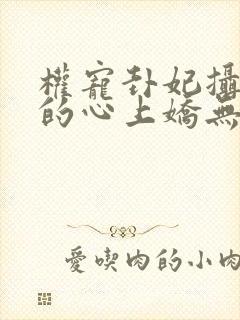 權寵卦妃攝
的心上嬌無
愛喫肉的小肉